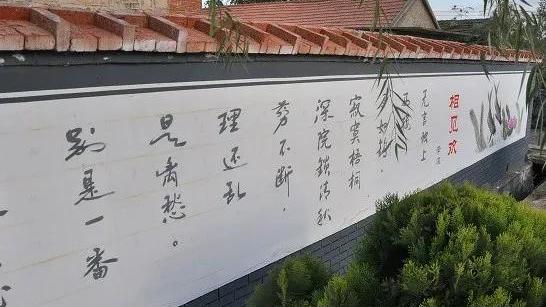 相见欢
无言独上
西
如钩.
寂寞梧桐
深院鎖清秋
剪不断.
理还乱
是离愁。
别是一番